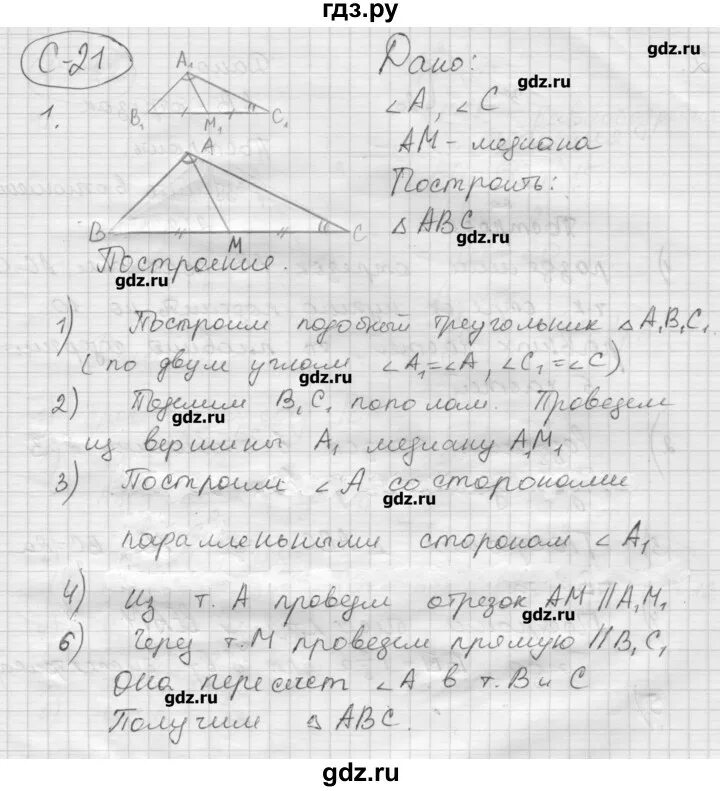 гдз.ру
С-21
1.
A₁
B₁
M₁
C₁
A
B
M
C
Дано:
gdz.ru
gdz.ru
∠A, ∠C
AM - медиана
Построить:
△ABC
gdz.ru
Построение.
gdz.ru
1) Построим подобный треугольник △A₁B₁C₁
(по двум углам ∠A₁=∠A, ∠C₁=∠C)
gdz.ru
2) Поделим B₁C₁ пополам. Проведем
gdz.ru
из вершины A₁ медиану A₁M₁
3) Построим ∠A со сторонами
gdz.ru
параллельными сторонам ∠A₁
4) Из т. A проведем отрезок AM || A₁M₁
gdz.ru
6) Через т. M проведем прямую || B₁C₁
Она пересечет ∠A в т. B и C
gdz.ru
Получим △ABC.
gdz.ru